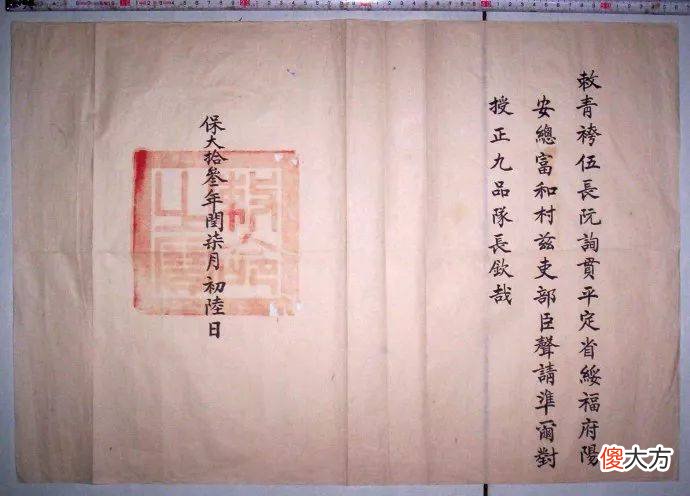 敕青袴伍長阮詢貫平定省綏福府陽
安總富和村茲吏部臣聲請準爾對
授正九品隊長欽哉
保大拾叄年閏柒月初陸日
傻大方